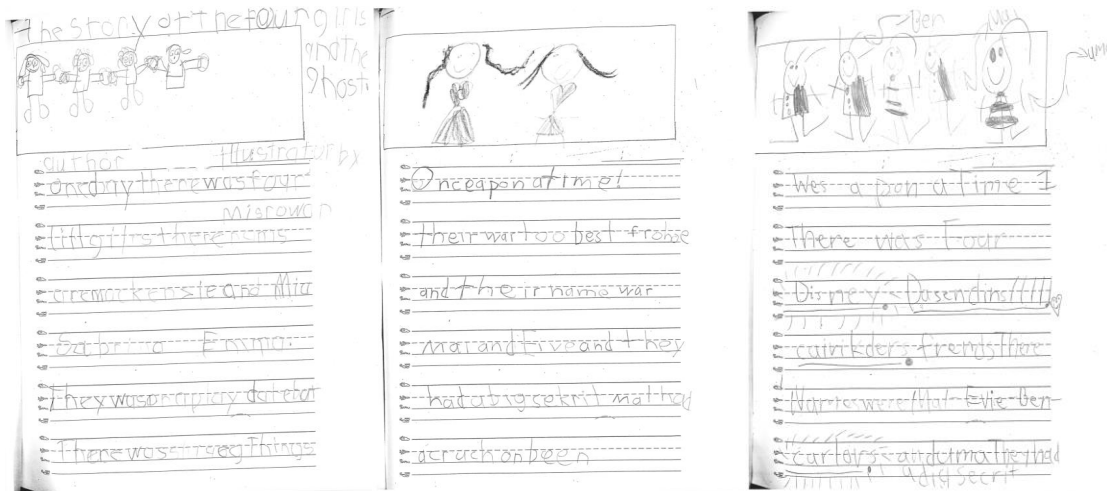 The story of the four girls
and the
ghost
author Illustrator by
one day there was four
Misrowan
littl girls there nams
are mackensie and Mia
Sabrina Emma.
They was a play date but
There was things
Once apon a time!
their war too best
and the ir name war
Mal and Eive and they
had a big sekrit mal had
a crach on been
Ben
Mal
uma
Wos a pon a Time I
There was Four
Disney Dasendins!!!!!
cairikders frends There
Nams were Mal Evie Ben
carlos and uma They had
a big secrit